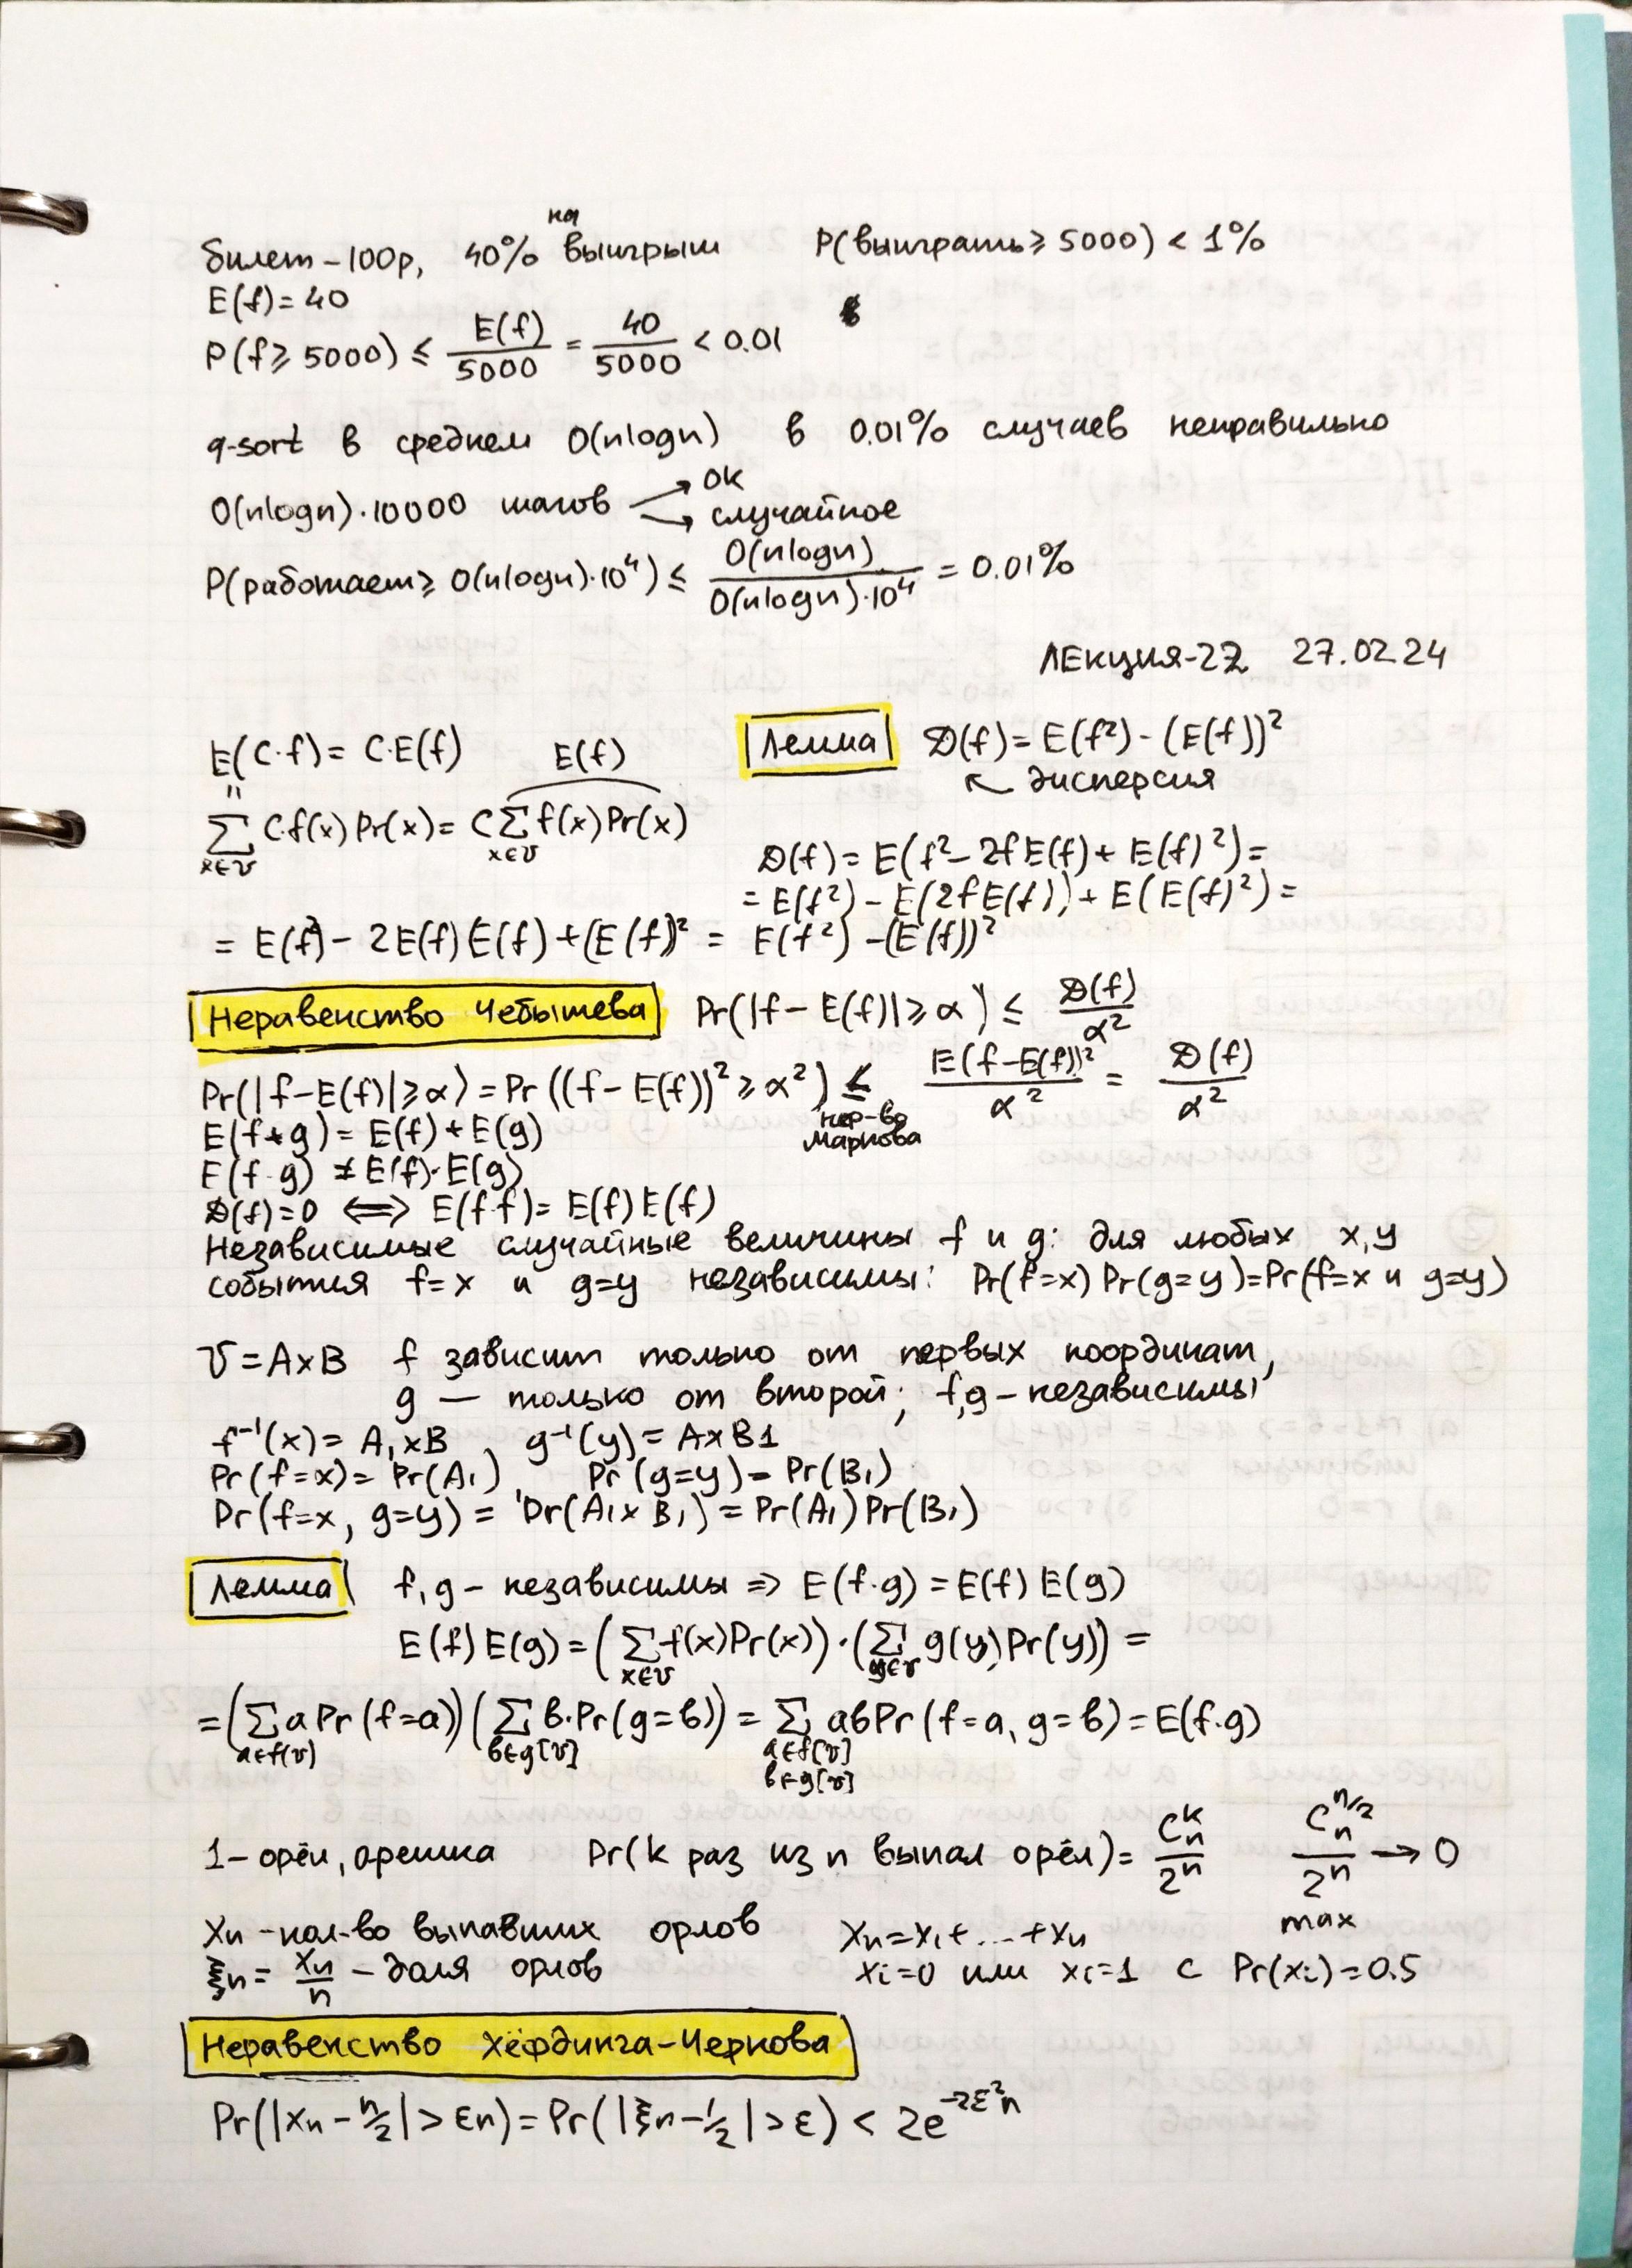 на
билет – 100р, 40% выигрыш P(выиграть ≥ 5000) < 1%
E(f) = 40
P(f ≥ 5000) ≤ E(f)/5000 = 40/5000 < 0.01
q-sort в среднем O(nlogn) в 0.01% случаев неправильно
O(nlogn)·10000 шагов → ОК
→ случайное
P(работает ≥ O(nlogn)·10⁴) ≤ O(nlogn)/(O(nlogn)·10⁴) = 0.01%
ЛЕКЦИЯ-22 27.02.24
E(C·f) = C·E(f) E(f)
"
∑_{x∈U} C·f(x) Pr(x) = C ∑_{x∈U} f(x) Pr(x)
Лемма D(f) = E(f²) - (E(f))²
↖ дисперсия
D(f) = E(f² - 2f E(f) + E(f)²) =
= E(f²) - E(2f E(f)) + E(E(f)²) =
= E(f²) - 2E(f) E(f) + (E(f))² = E(f²) - (E(f))²
Неравенство Чебышева Pr(|f - E(f)| ≥ α) ≤ D(f)/α²
Pr(|f - E(f)| ≥ α) = Pr((f - E(f))² ≥ α²) ≤ E(f - E(f))²/α² = D(f)/α²
нер-во
Маркова
E(f+g) = E(f) + E(g)
E(f·g) ≠ E(f)·E(g)
D(f) = 0 ⟺ E(f·f) = E(f) E(f)
Независимые случайные величины f и g: для любых x, y
события f=x и g=y независимы: Pr(f=x) Pr(g=y) = Pr(f=x и g=y)
U = A×B f зависит только от первых координат,
g — только от второй; f,g – независимы
f⁻¹(x) = A₁×B, g⁻¹(y) = A×B1
Pr(f=x) = Pr(A₁) Pr(g=y) = Pr(B₁)
Pr(f=x, g=y) = Pr(A₁×B₁) = Pr(A₁) Pr(B₁)
Лемма f, g – независимы ⇒ E(f·g) = E(f) E(g)
E(f) E(g) = (∑_{x∈U} f(x) Pr(x))·(∑_{y∈U} g(y) Pr(y)) =
= (∑_{a∈f(U)} a Pr(f=a)) (∑_{b∈g[U]} b·Pr(g=b)) = ∑_{a∈f[U] b∈g[U]} ab Pr(f=a, g=b) = E(f·g)
1 – орёл, орешка Pr(k раз из n выпал орёл) = C_n^k/2ⁿ C_n^{n/2}/2ⁿ → 0
max
Xn – кол-во выпавших орлов Xn = x₁ + ... + xn
ξn = Xn/n – доля орлов xi = 0 или xi = 1 с Pr(xi) = 0.5
Неравенство Хёфдинга-Чернова
Pr(|Xn - n/2| > εn) = Pr(|ξn - 1/2| > ε) < 2e^{-2ε²n}